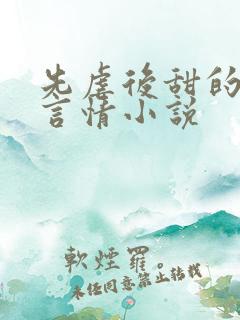 先虐後甜的
言情小說
軟煙羅。
未经同意禁止转载